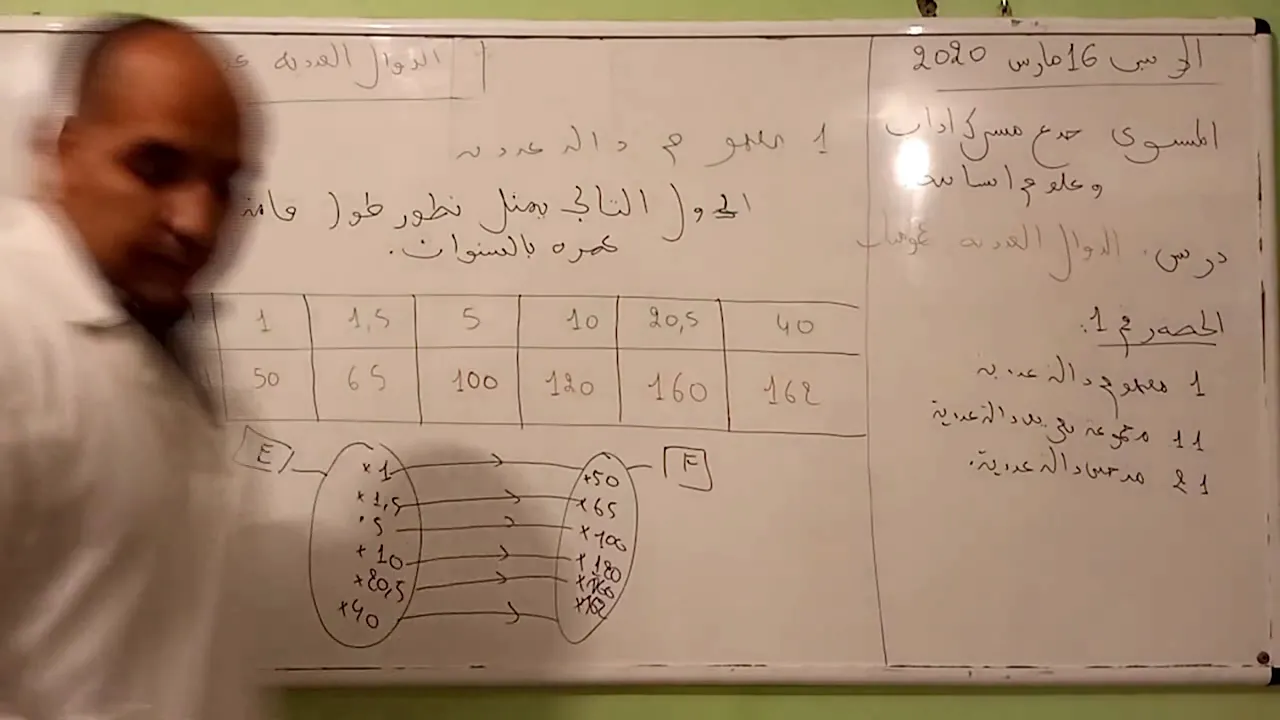 الدرس 16 مارس 2020
المستوى جدع مشترك اداب
وعلوم انسانية
درس. الدوال العددية عموميات
المحور 1:
1 مفهوم دالة عددية
11 مجموعة تعريف دالة عددية
21 منحنى دالة عددية.
الدوال العددية
1 مفهوم دالة عددية
الجدول التالي يمثل تطور طول قامة
عمره بالسنوات.
1 1,5 5 10 20,5 40
50 65 100 120 160 162
E F
×1 ×50
×1,5 ×65
5 ×100
×10 ×120
×20,5 ×160
×40 ×162